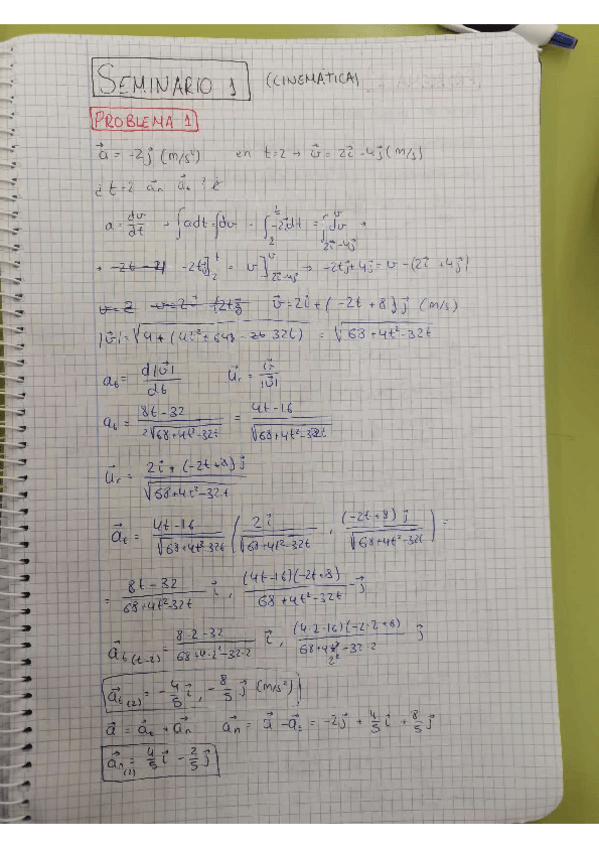 SEMINARIO 1 (CINEMÁTICA)
PROBLEMA 1
a⃗ = -2j⃗ (m/s²) en t=2 → v⃗ = 2i⃗ -4j⃗ (m/s)
¿ t=2 a⃗n a⃗t ?
a = dv/dt → ∫adt = ∫dv → ∫₂ᵗ -2j⃗dt = ∫_{2i⃗-4j⃗}^v dv →
→ -2tj⃗]₂ᵗ = v]_{2i⃗-4j⃗}^v → -2tj⃗+4j⃗ = v - (2i⃗ + 4j⃗)
v⃗ = 2i⃗ + (-2t + 8)j⃗ (m/s)
|v⃗| = √(68+4t²-32t)
at = d|v⃗|/dt u⃗r = v⃗/|v⃗|
at = (8t-32)/(2√(68+4t²-32t)) = (4t-16)/√(68+4t²-32t)
u⃗r = (2i⃗ + (-2t+8)j⃗)/√(68+4t²-32t)
a⃗t = (4t-16)/√(68+4t²-32t) ( 2i⃗/√(68+4t²-32t) , (-2t+8)j⃗/√(68+4t²-32t) ) =
= (8t-32)/(68+4t²-32t) i⃗ , (4t-16)(-2t+8)/(68+4t²-32t) j⃗
a⃗t(t=2) = (8·2-32)/(68+4·2²-32·2) i⃗ , (4·2-16)(-2·2+8)/(68+4·2²-32·2) j⃗
a⃗t(2) = -4/5 i⃗ , -8/5 j⃗ (m/s²)
a⃗ = a⃗t + a⃗n a⃗n = a⃗ - a⃗t = -2j⃗ + 4/5 i⃗ + 8/5 j⃗
a⃗n(2) = 4/5 i⃗ - 2/5 j⃗